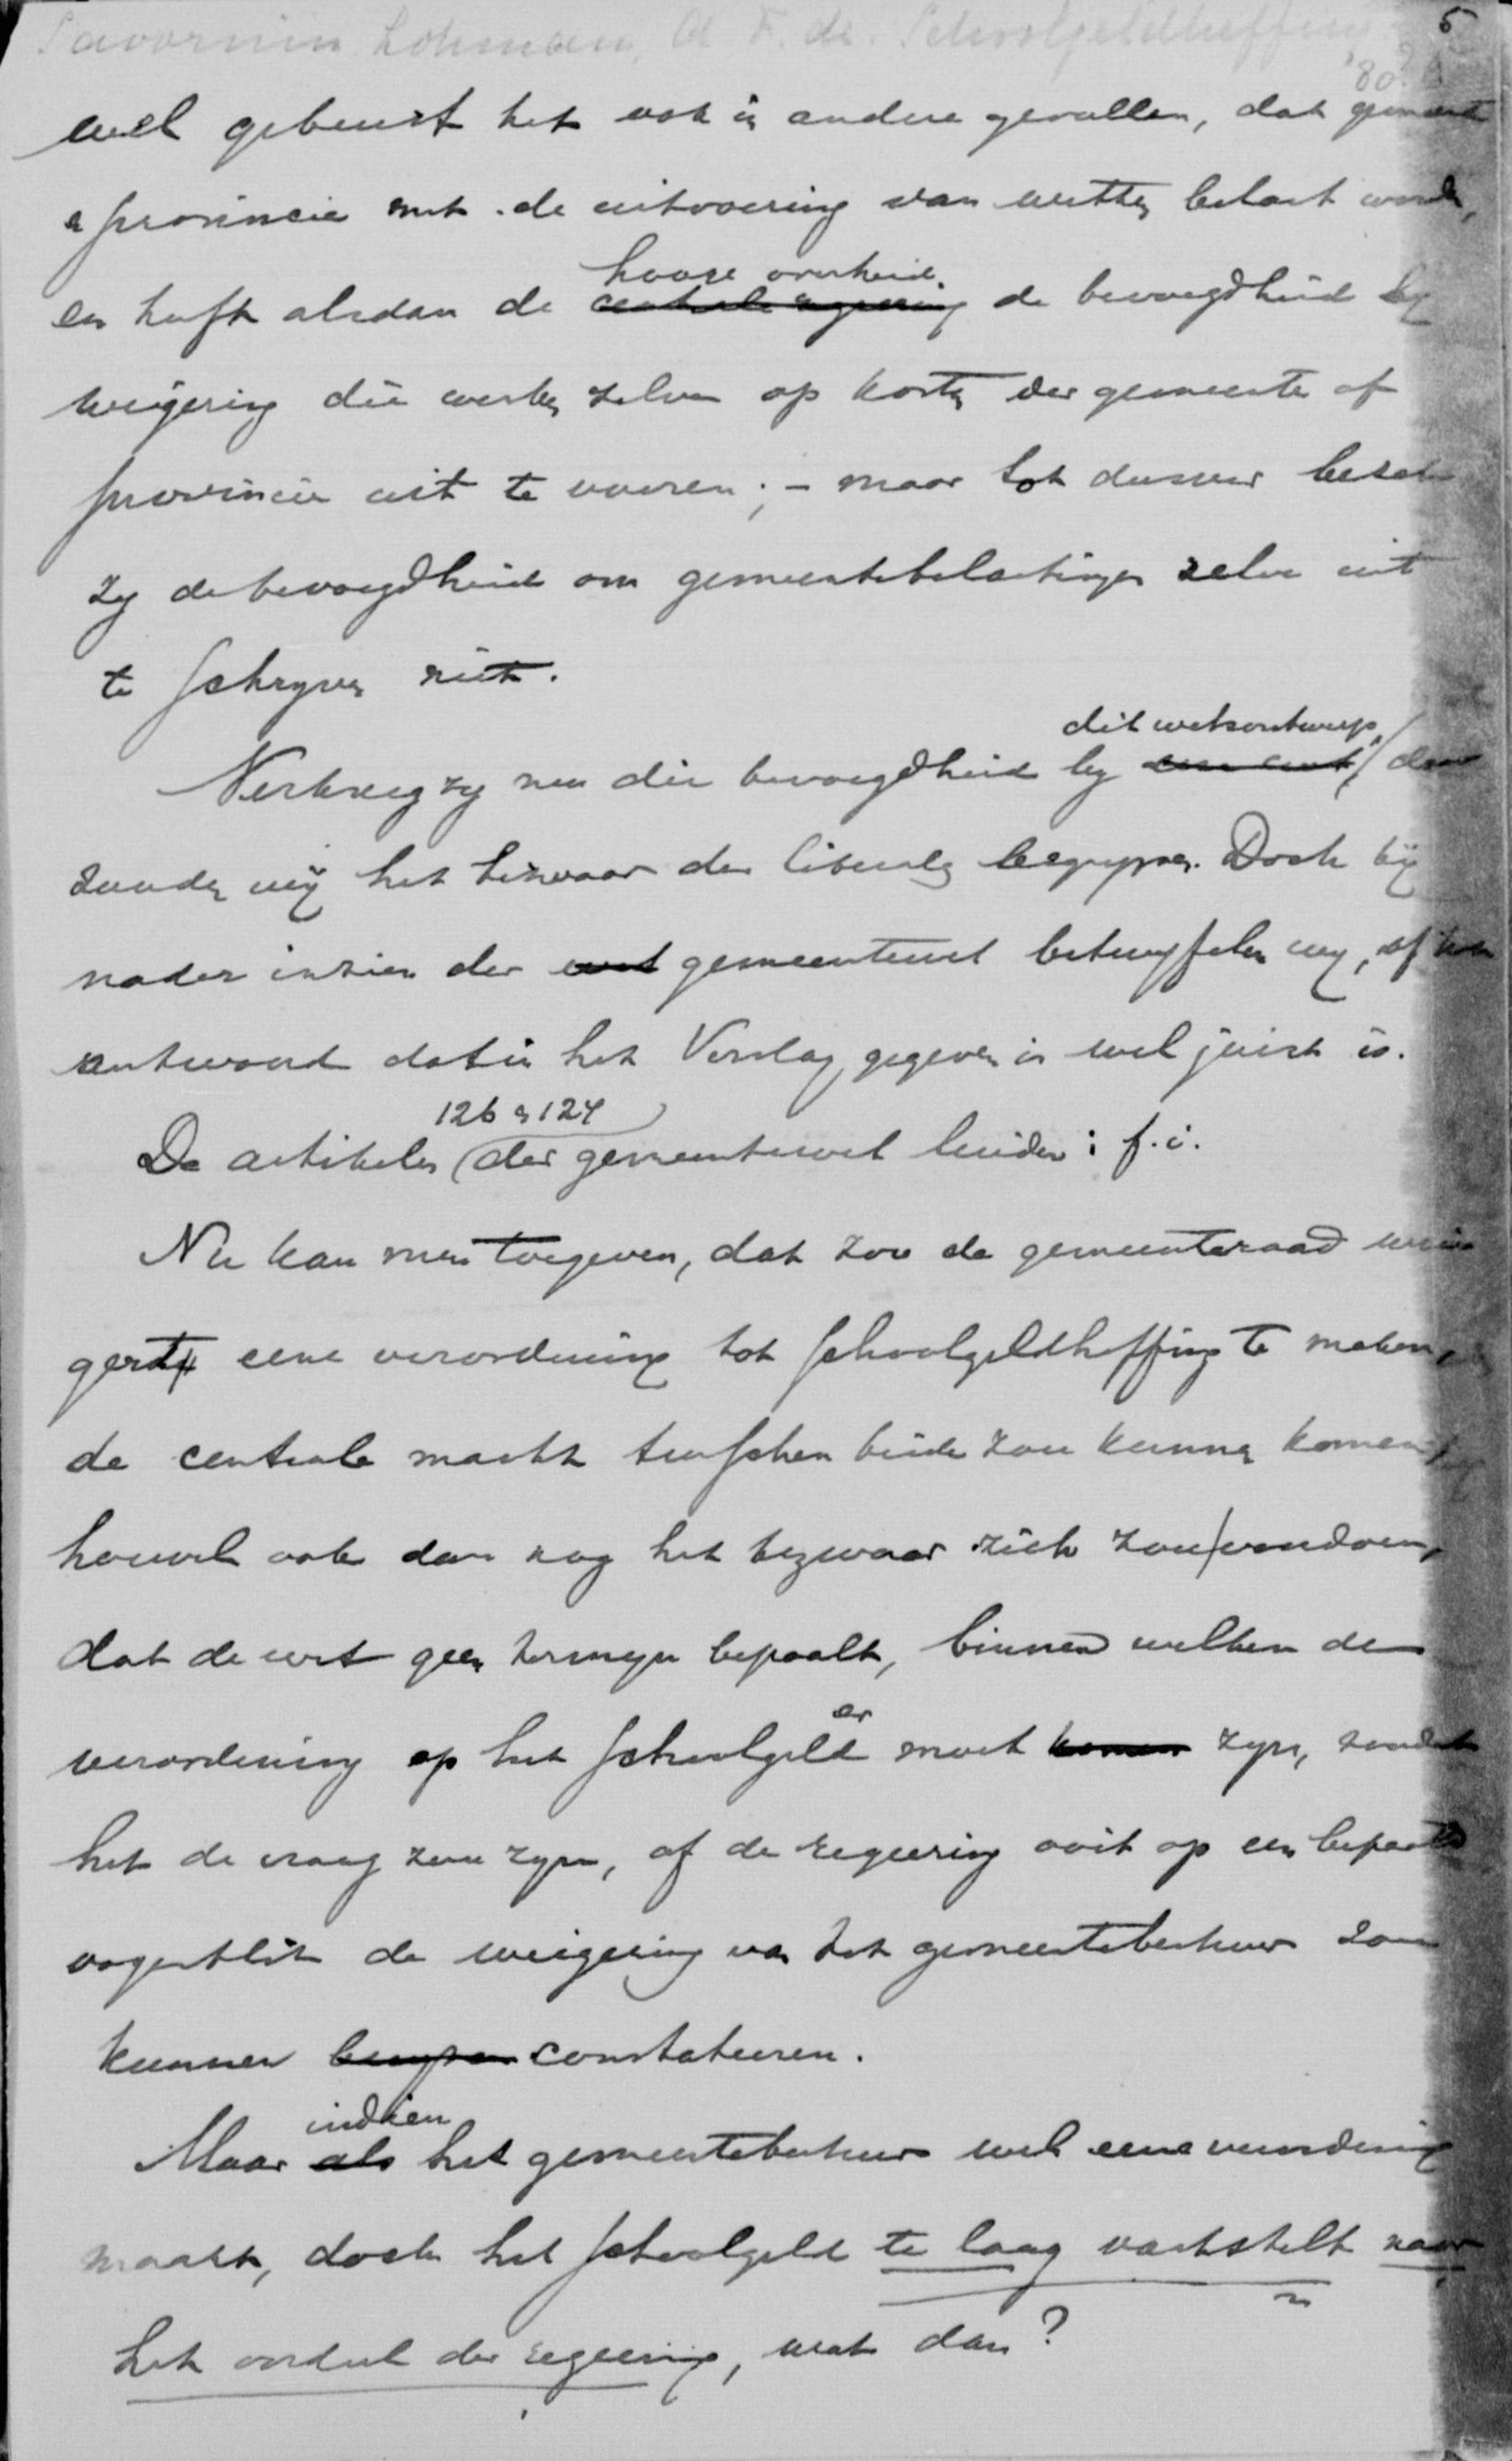 Savornin Lohman, A F. de. Schoolgeldheffing
5
'80
wel gebeurt het ook in andere gevallen, dat gemeente
en provincie met de uitvoering van wetten belast worden,
hooge overheid
en heeft alsdan de centrale regeering de bevoegdheid by
weigering die wetten zelven op kosten der gemeente of
provincie uit te voeren; – maar tot dusver bezat
zy de bevoegdheid om gemeentebelastingen zelve uit
te schryven niet.
dit wetsontwerp,
Verkreeg zy nu die bevoegdheid by eene wet, dan
zouden wij het bezwaar der liberalen begrypen. Doch bij
nader inzien der wet gemeentewet betwyfelen wy, of het
antwoord dat in het Verslag gegeven is wel juist is.
126 en 127
De artikelen der gemeentewet luiden: f.i.
Nu kan men toegeven, dat zoo de gemeenteraad wei
gerde eene verordening tot schoolgeldheffing te maken,
de centrale macht tusschen beide zou kunnen komen,
hoewel ook dan nog het bezwaar zich zou voordoen,
dat de wet geen termyn bepaalt, binnen welken de
er
verordening op het schoolgeld moet komen zyn, zoodat
het de vraag zou zyn, of de regeering ooit op een bepaald
oogenblik de weigering van het gemeentebestuur zou
kunnen constateeren.
indien
Maar als het gemeentebestuur wel eene verordening
maakt, doch het schoolgeld te laag vaststelt naar
het oordeel der regeering, wat dan?